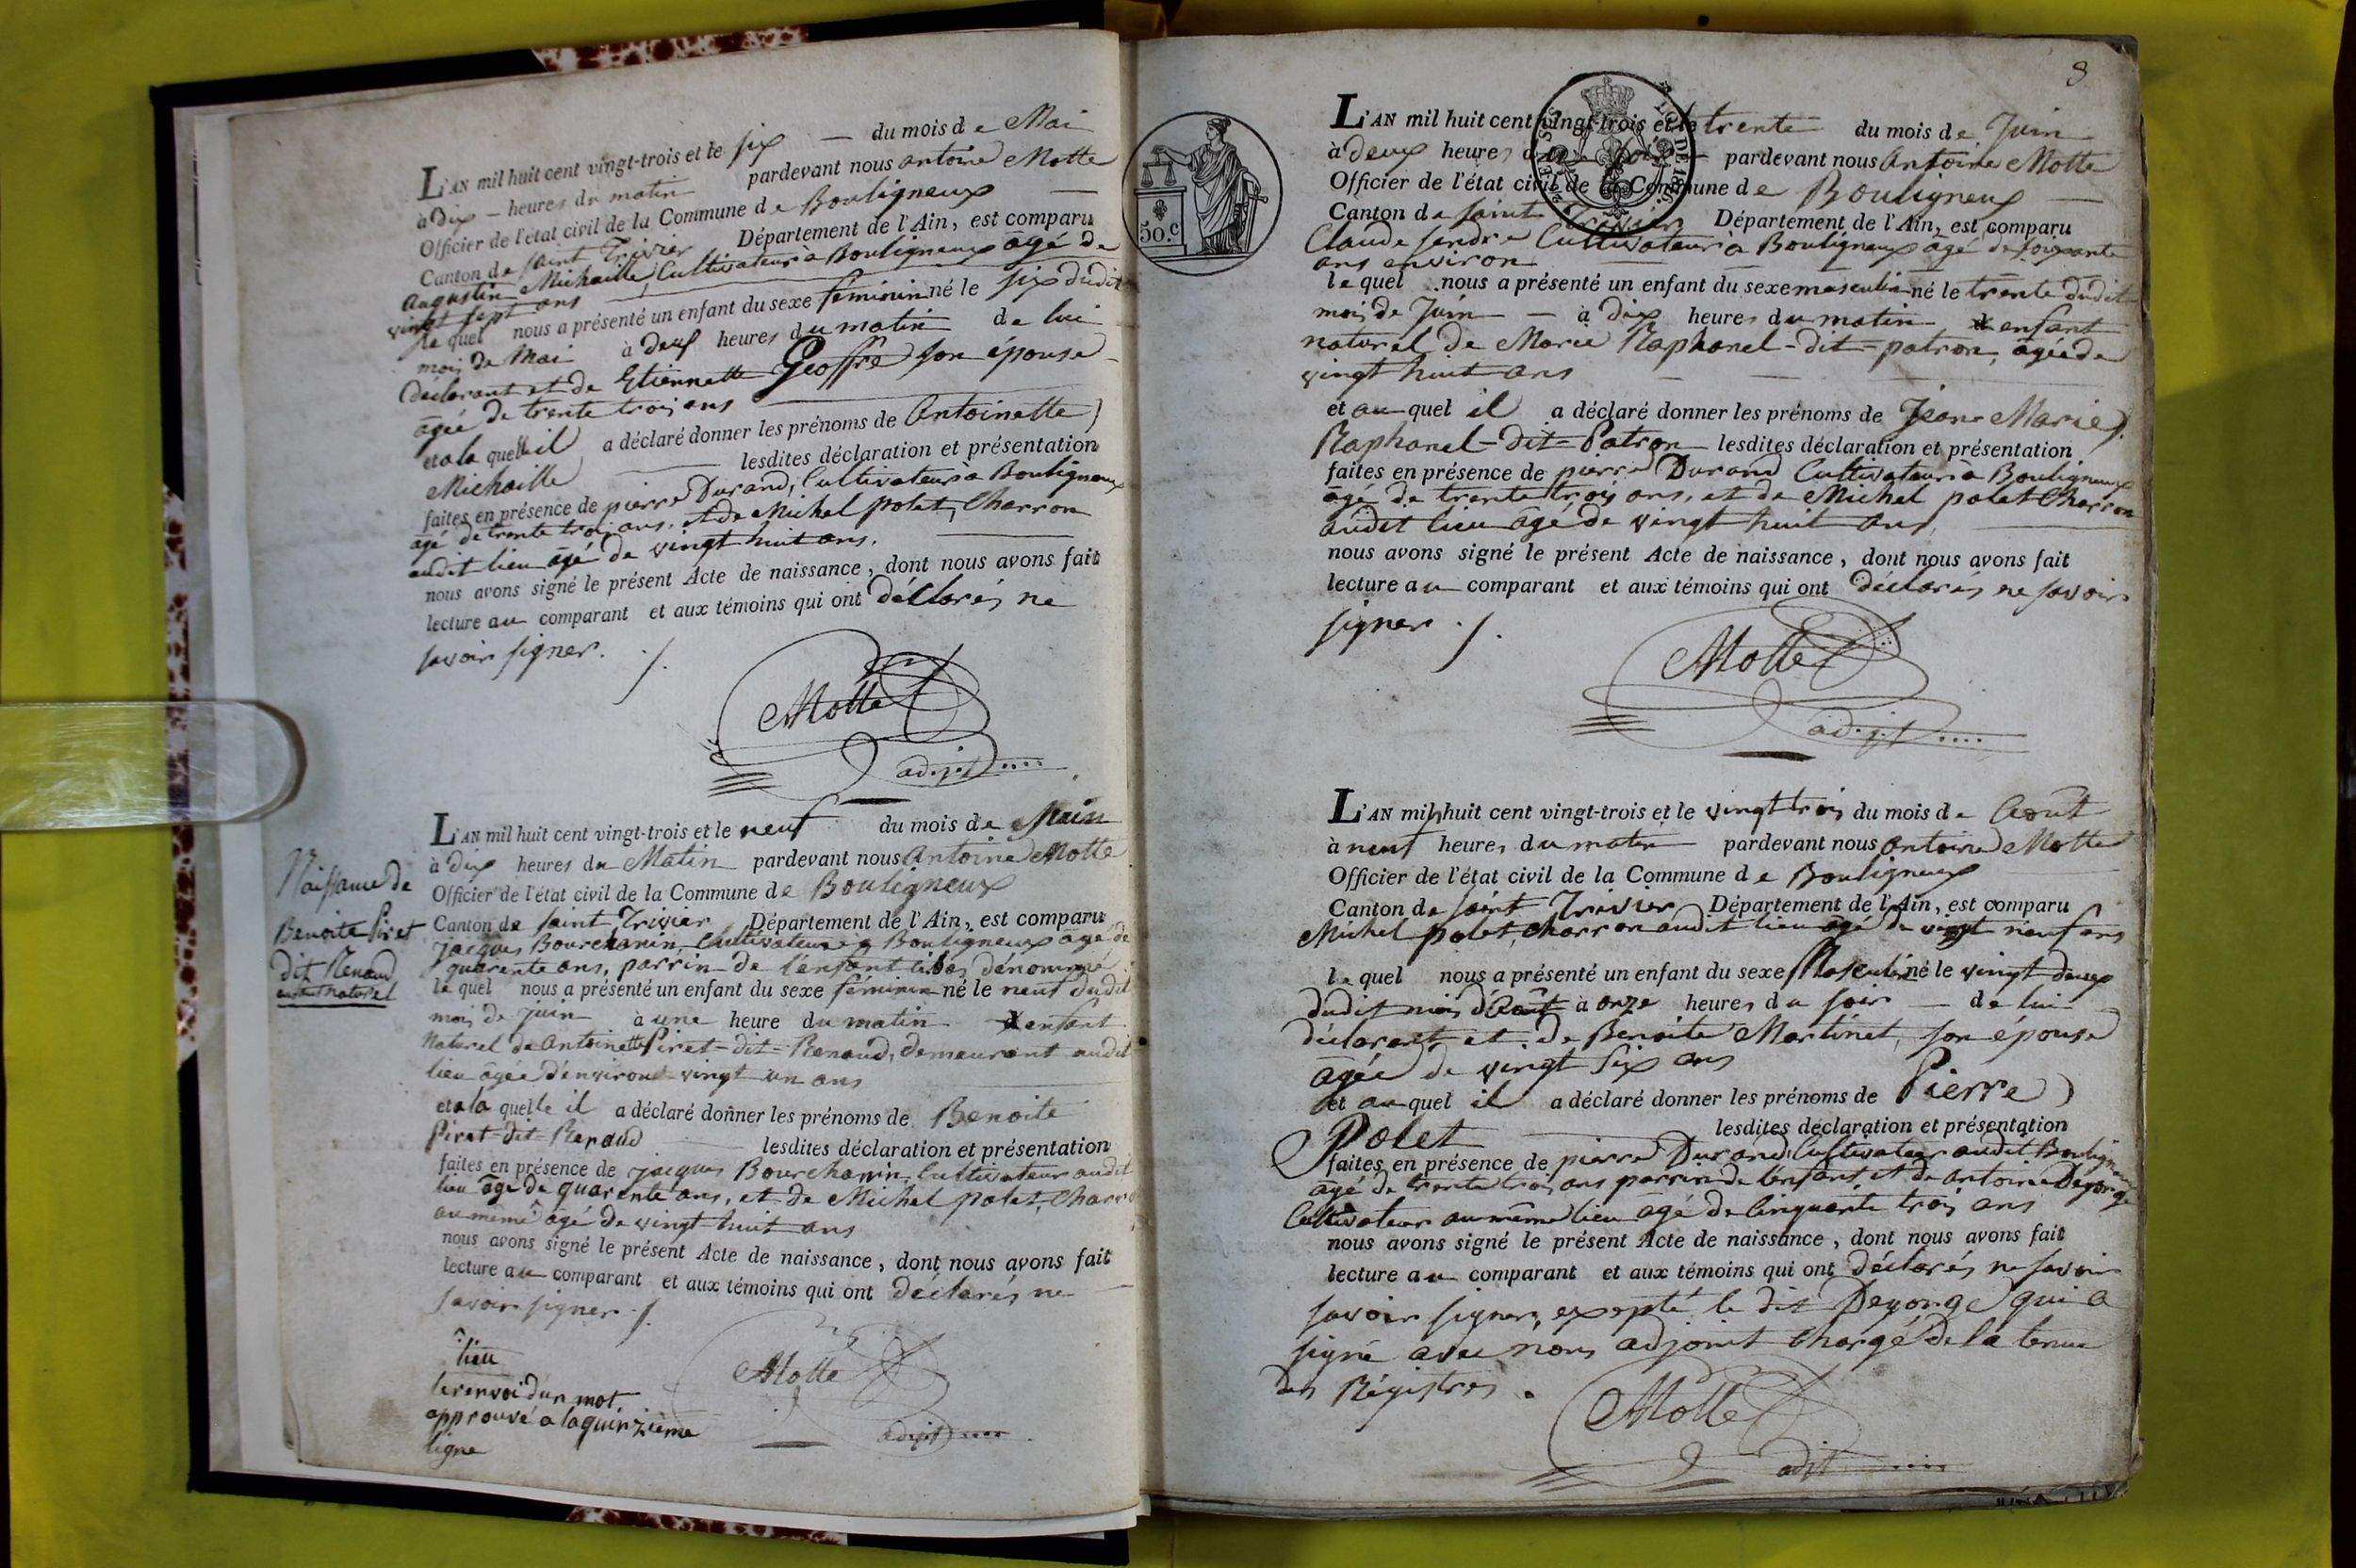 L'AN mil huit cent vingt-trois et le six — du mois de Mai
à dix — heures du matin pardevant nous antoine Motte
Officier de l'état civil de la Commune de Bouligneux —
Canton de saint Trivier Département de l'Ain, est comparu
augustin Michaille, Cultivateur à Bouligneux âgé de
vingt sept ans
le quel nous a présenté un enfant du sexe féminin né le six dudit
mois de Mai à deux heures du matin de lui
déclarant et de Etiennette Geoffre son épouse
âgée de trente trois ans
et a la quelle il a déclaré donner les prénoms de Antoinette
Michaille lesdites déclaration et présentation
faites en présence de pierre Durand, Cultivateur à Bouligneux
agé de trente trois ans, et de Michel polet, Charron
audit lieu âgé de vingt huit ans.
nous avons signé le présent Acte de naissance, dont nous avons fait
lecture au comparant et aux témoins qui ont déclarés ne
savoir signer. /.
Motte
adjt
Naissance de
Benoite Piret
dit Renaud
enfant naturel
L'AN mil huit cent vingt-trois et le neuf du mois de Juin
à dix heures du Matin pardevant nous Antoine Motte
Officier de l'état civil de la Commune de Bouligneux
Canton de saint Trivier Département de l'Ain, est comparu
jacques Bourchanin, Cultivateur à Bouligneux âgé de
quarente ans, parrin de l'enfant ci bas dénommé
le quel nous a présenté un enfant du sexe féminin né le neuf dudit
mois de juin à une heure du matin enfant
Naturel de Antoinette Piret-dit-Renaud, demeurant audit
lieu agée d'environ vingt un ans
et a la quelle il a déclaré donner les prénoms de Benoite
Piret-dit-Renaud lesdites déclaration et présentation
faites en présence de jacques Bourchanin, Cultivateur audit
lieu âgé de quarente ans, et de Michel polet, Charron
au même âgé de vingt huit ans
nous avons signé le présent Acte de naissance, dont nous avons fait
lecture au comparant et aux témoins qui ont déclarés ne —
savoir signer. /.
lieu
le renvoi d'un mot
approuvé a la quinzième
ligne
Motte
adjt
8
50.c
L'AN mil huit cent vingt-trois et le trente du mois de Juin
à deux heures du soir pardevant nous Antoine Motte
Officier de l'état civil de la Commune de Bouligneux —
Canton de saint Trivier Département de l'Ain, est comparu
Claude sendre Cultivateur à Bouligneux âgé de soixante
ans environ
le quel nous a présenté un enfant du sexe masculin né le trente dudit
mois de Juin — à dix heures du matin enfant
naturel de Marie Raphanel-dit-patron, âgée de
vingt huit ans
et au quel il a déclaré donner les prénoms de Jean Marie
Raphanel-dit-Patron lesdites déclaration et présentation
faites en présence de pierre Durand Cultivateur à Bouligneux
âgé de trente trois ans, et de Michel polet Charron
audit lieu âgé de vingt huit ans
nous avons signé le présent Acte de naissance, dont nous avons fait
lecture au comparant et aux témoins qui ont déclarés ne savoir
signer. /.
Motte
adjt
L'AN mil huit cent vingt-trois et le vingt trois du mois de Août
à neuf heures du matin pardevant nous Antoine Motte
Officier de l'état civil de la Commune de Bouligneux
Canton de saint Trivier Département de l'Ain, est comparu
Michel polet, Charron audit lieu âgé de vingt neuf ans
le quel nous a présenté un enfant du sexe Masculin né le vingt deux
dudit mois d'Août à onze heures du soir — de lui
déclarant et de Benoite Martinet, son épouse
âgée de vingt six ans
et au quel il a déclaré donner les prénoms de Pierre
Polet lesdites déclaration et présentation
faites en présence de pierre Durand, Cultivateur audit Bouligneux
âgé de trente trois ans parrin de l'enfant, et de antoine Deyonge
Cultivateur au même lieu âgé de cinquante trois ans
nous avons signé le présent Acte de naissance, dont nous avons fait
lecture au comparant et aux témoins qui ont déclarés ne savoir
savoir signer, excepté le dit Deyonge qui a
signé avec nous adjoint chargé de la tenue
des Régistres.
Motte
adjt